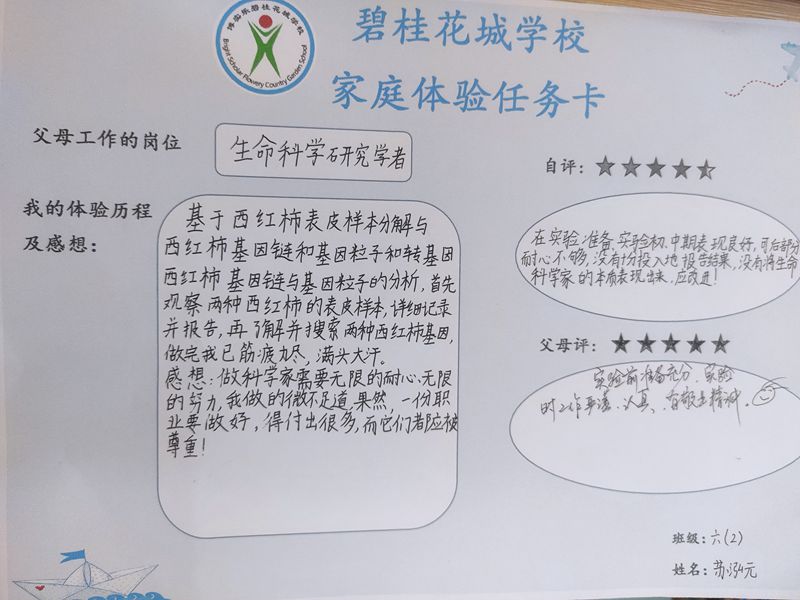 博实乐碧桂花城学校
Bright Scholar Flowery Country Garden School
碧桂花城学校
家庭体验任务卡
父母工作的岗位
生命科学研究学者
我的体验历程
及感想：
基于西红柿表皮样本分解与
西红柿基因链和基因粒子和转基因
西红柿基因链与基因粒子的分析，首先
观察两种西红柿的表皮样本，详细记录
并报告，再了解并搜索两种西红柿基因，
做完我已筋疲力尽，满头大汗。
感想：做科学家需要无限的耐心、无限
的努力，我做的微不足道，果然，一份职
业要做好，得付出很多，而它们都应被
尊重！
自评：
在实验准备、实验初、中期表现良好，可后部分
耐心不够，没有十分投入地报告结果，没有将生命
科学家的本质表现出来，应改进！
父母评：
实验前准备充分，实验
时工作严谨、认真、有敬业精神。
班级：六(2)
姓名：苏泓元